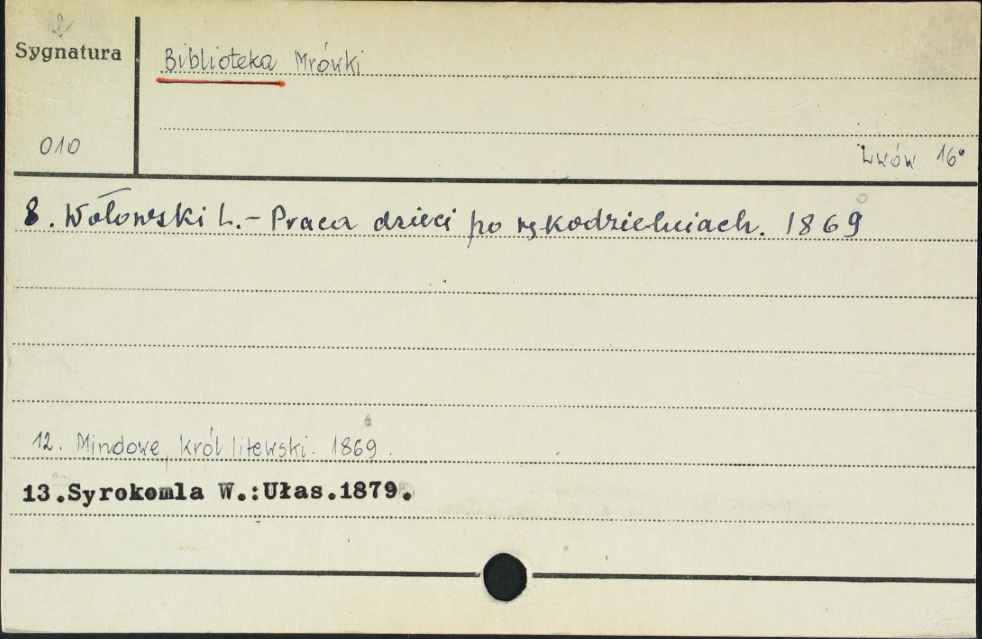 Sygnatura
Biblioteka Mrówki
010
Lwów 16°
8. Wołowski L. - Praca dzieci po rękodzielniach. 1869
12. Mindowe, król litewski. 1869.
13.Syrokomla W.:Ułas.1879.